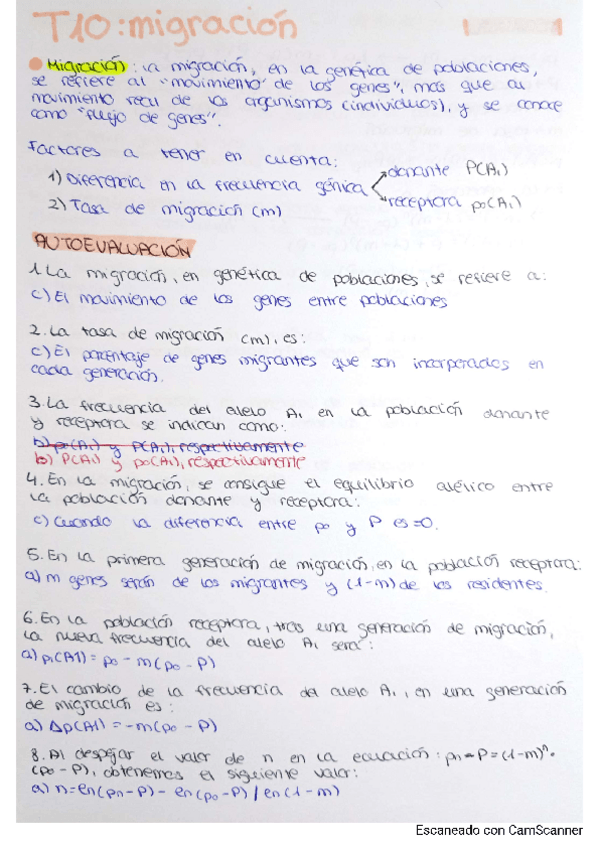 T10: migración
Migración: la migración, en la genética de poblaciones,
se refiere al "movimiento de los genes", más que al
movimiento real de los organismos (individuos), y se conoce
como "flujo de genes".
Factores a tener en cuenta:
1) Diferencia en la frecuencia génica
donante P(A₁)
receptora p₀(A₁)
2) Tasa de migración (m)
AUTOEVALUACIÓN
1. La migración, en genética de poblaciones, se refiere a:
c) El movimiento de los genes entre poblaciones
2. La tasa de migración (m), es:
c) El porcentaje de genes migrantes que son incorporados en
cada generación.
3. La frecuencia del alelo A₁ en la población donante
y receptora se indican como:
b) p₀(A₁) y P(A₁), respectivamente
b) P(A₁) y p₀(A₁), respectivamente
4. En la migración, se consigue el equilibrio alélico entre
la población donante y receptora:
c) Cuando la diferencia entre p₀ y P es =0.
5. En la primera generación de migración, en la población receptora:
a) m genes serán de los migrantes y (1-m) de los residentes.
6. En la población receptora, tras una generación de migración,
la nueva frecuencia del alelo A₁ será:
a) p₁(A1) = p₀ - m(p₀ - P)
7. El cambio de la frecuencia del alelo A₁, en una generación
de migración es:
a) Δp(A1) = -m(p₀ - P)
8. Al despejar el valor de n en la ecuación: pn - P = (1-m)ⁿ·
(p₀ - P), obtenemos el siguiente valor:
a) n = ln(pn - P) - ln(p₀ - P) / ln(1 - m)
Escaneado con CamScanner